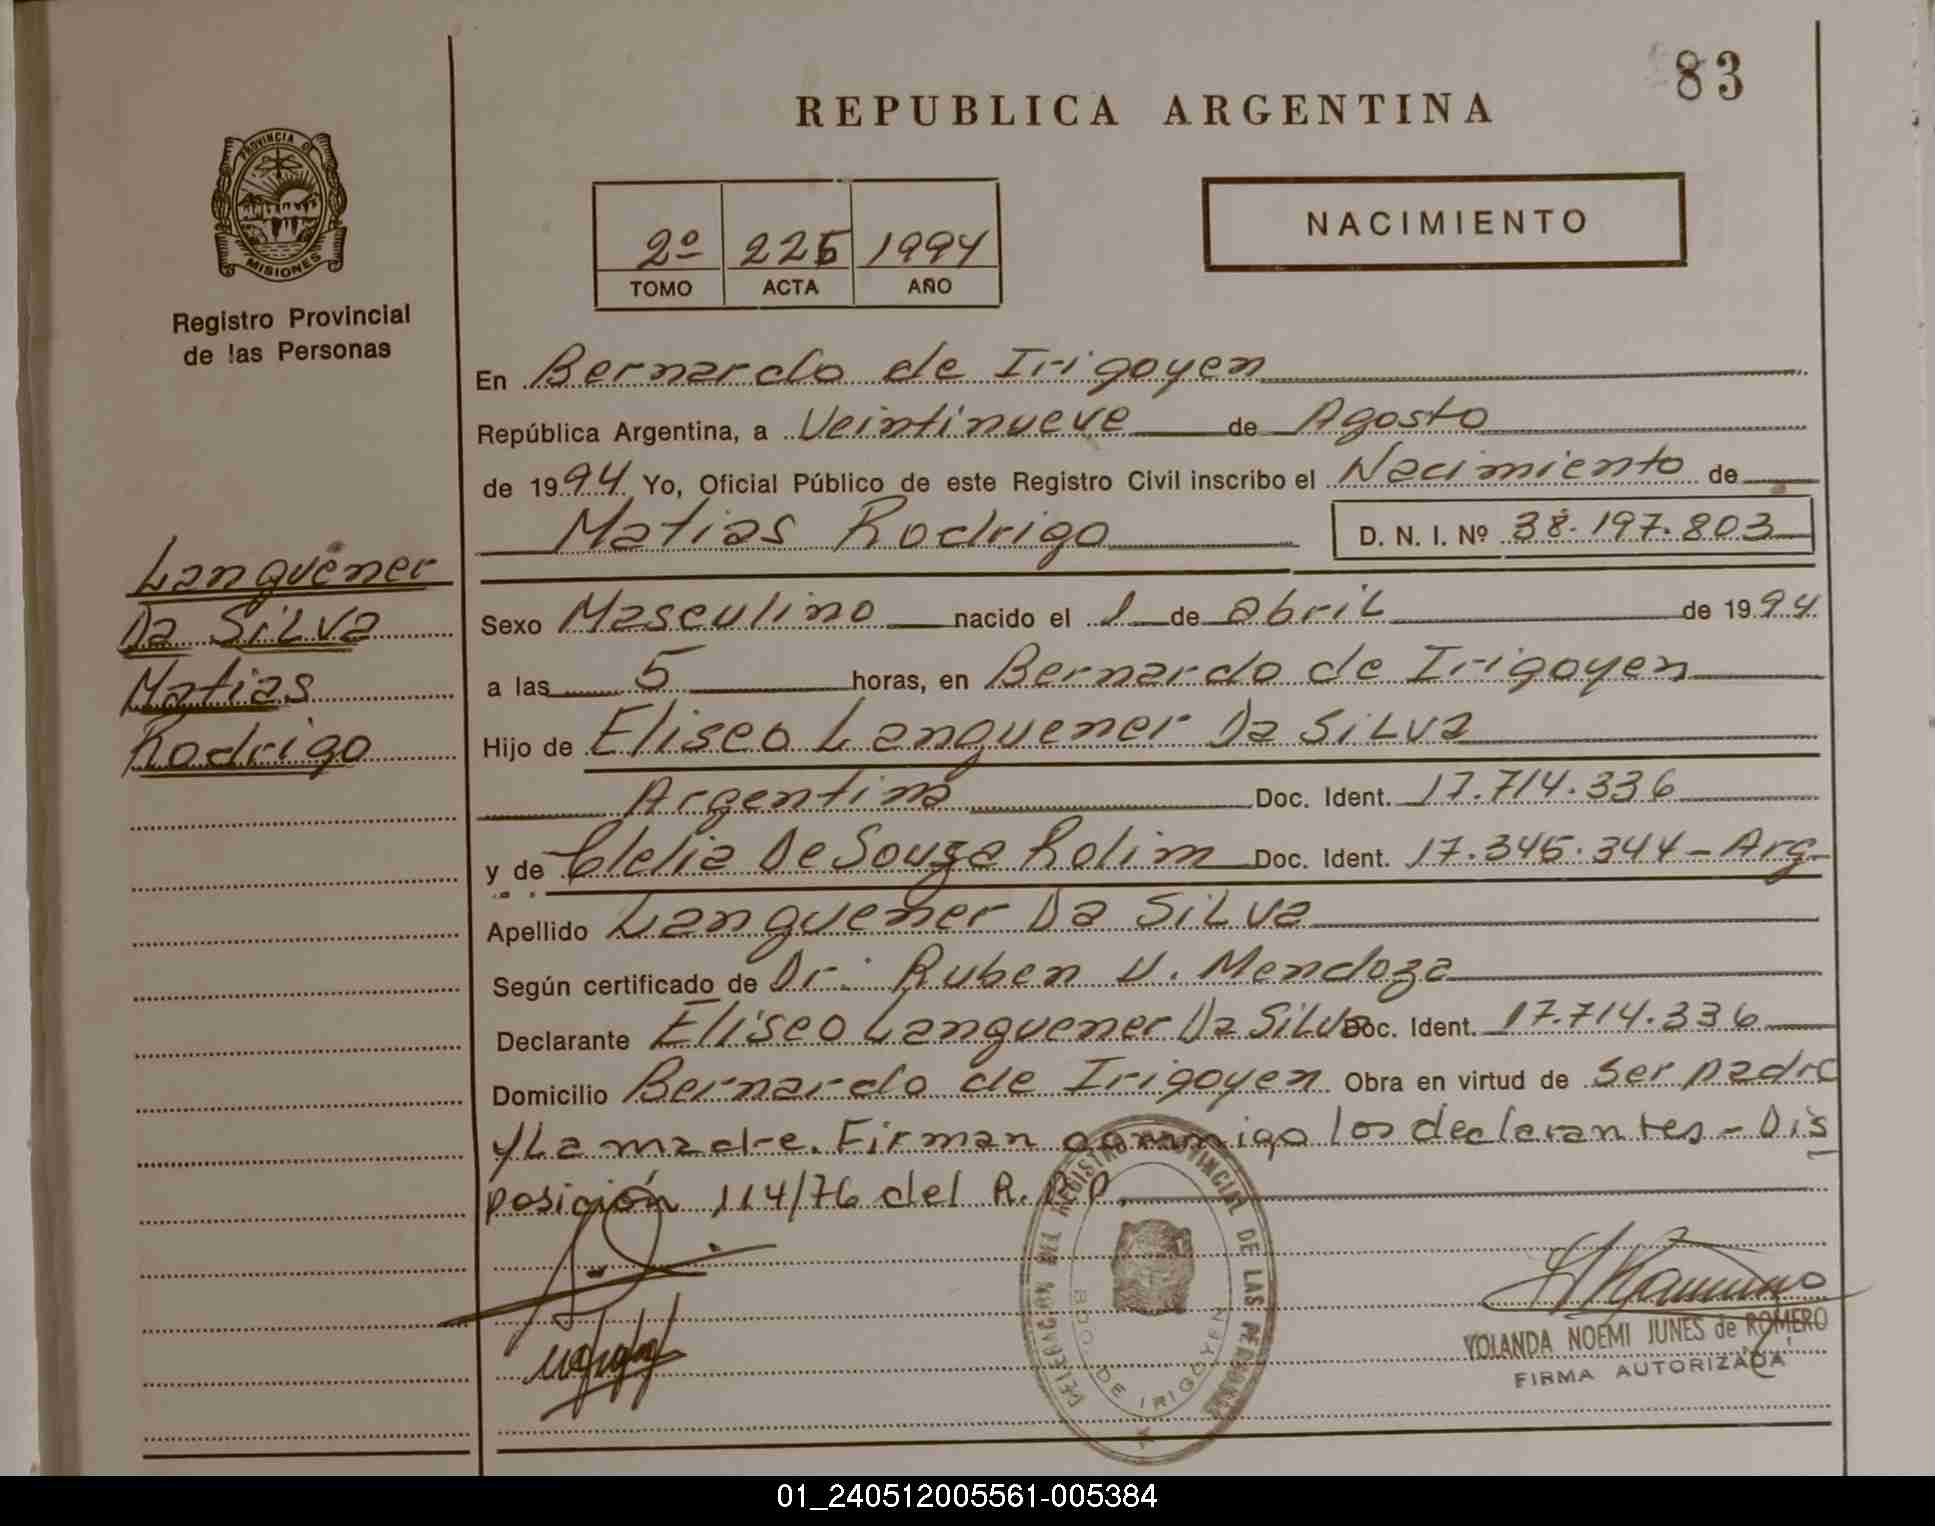 83
REPUBLICA ARGENTINA
PROVINCIA DE
MISIONES
Registro Provincial
de las Personas
NACIMIENTO
2º 225 1994
TOMO ACTA AÑO
En Bernardo de Irigoyen
República Argentina, a Veintinueve de Agosto
de 1994 Yo, Oficial Público de este Registro Civil inscribo el Nacimiento de
Matias Rodrigo D. N. I. Nº 38.197.803
Languener
Da Silva
Matias
Rodrigo
Sexo Masculino nacido el 1 de abril de 1994
a las 5 horas, en Bernardo de Irigoyen
Hijo de Eliseo Languener Da Silva
Argentina Doc. Ident. 17.714.336
y de Clelia De Souza Rolim Doc. Ident. 17.345.344 - Arg.
Apellido Languener Da Silva
Según certificado de Dr. Ruben U. Mendoza
Declarante Eliseo Languener Da Silva Doc. Ident. 17.714.336
Domicilio Bernardo de Irigoyen Obra en virtud de ser padre
y La madre. Firman conmigo los declarantes - Dis
posición 114/76 del R. P. P.
DELEGACION DEL REGISTRO PROVINCIAL DE LAS PERSONAS
BDO. DE IRIGOYEN
YOLANDA NOEMI JUNES de ROMERO
FIRMA AUTORIZADA
01_240512005561-005384